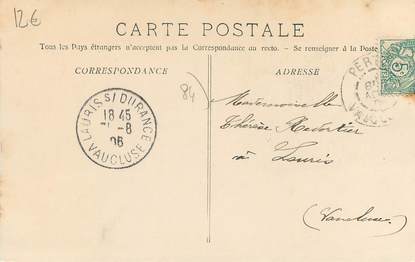 12€
CARTE POSTALE
Tous les Pays étrangers n'acceptent pas la Correspondance au recto. — Se renseigner à la Poste
CORRESPONDANCE
ADRESSE
84)
LAURIS S/ DURANCE
18 45
-8
06
VAUCLUSE
PERT
VAUCLU
5
Mademoiselle
Thérèse
à Lauris
(Vaucluse)